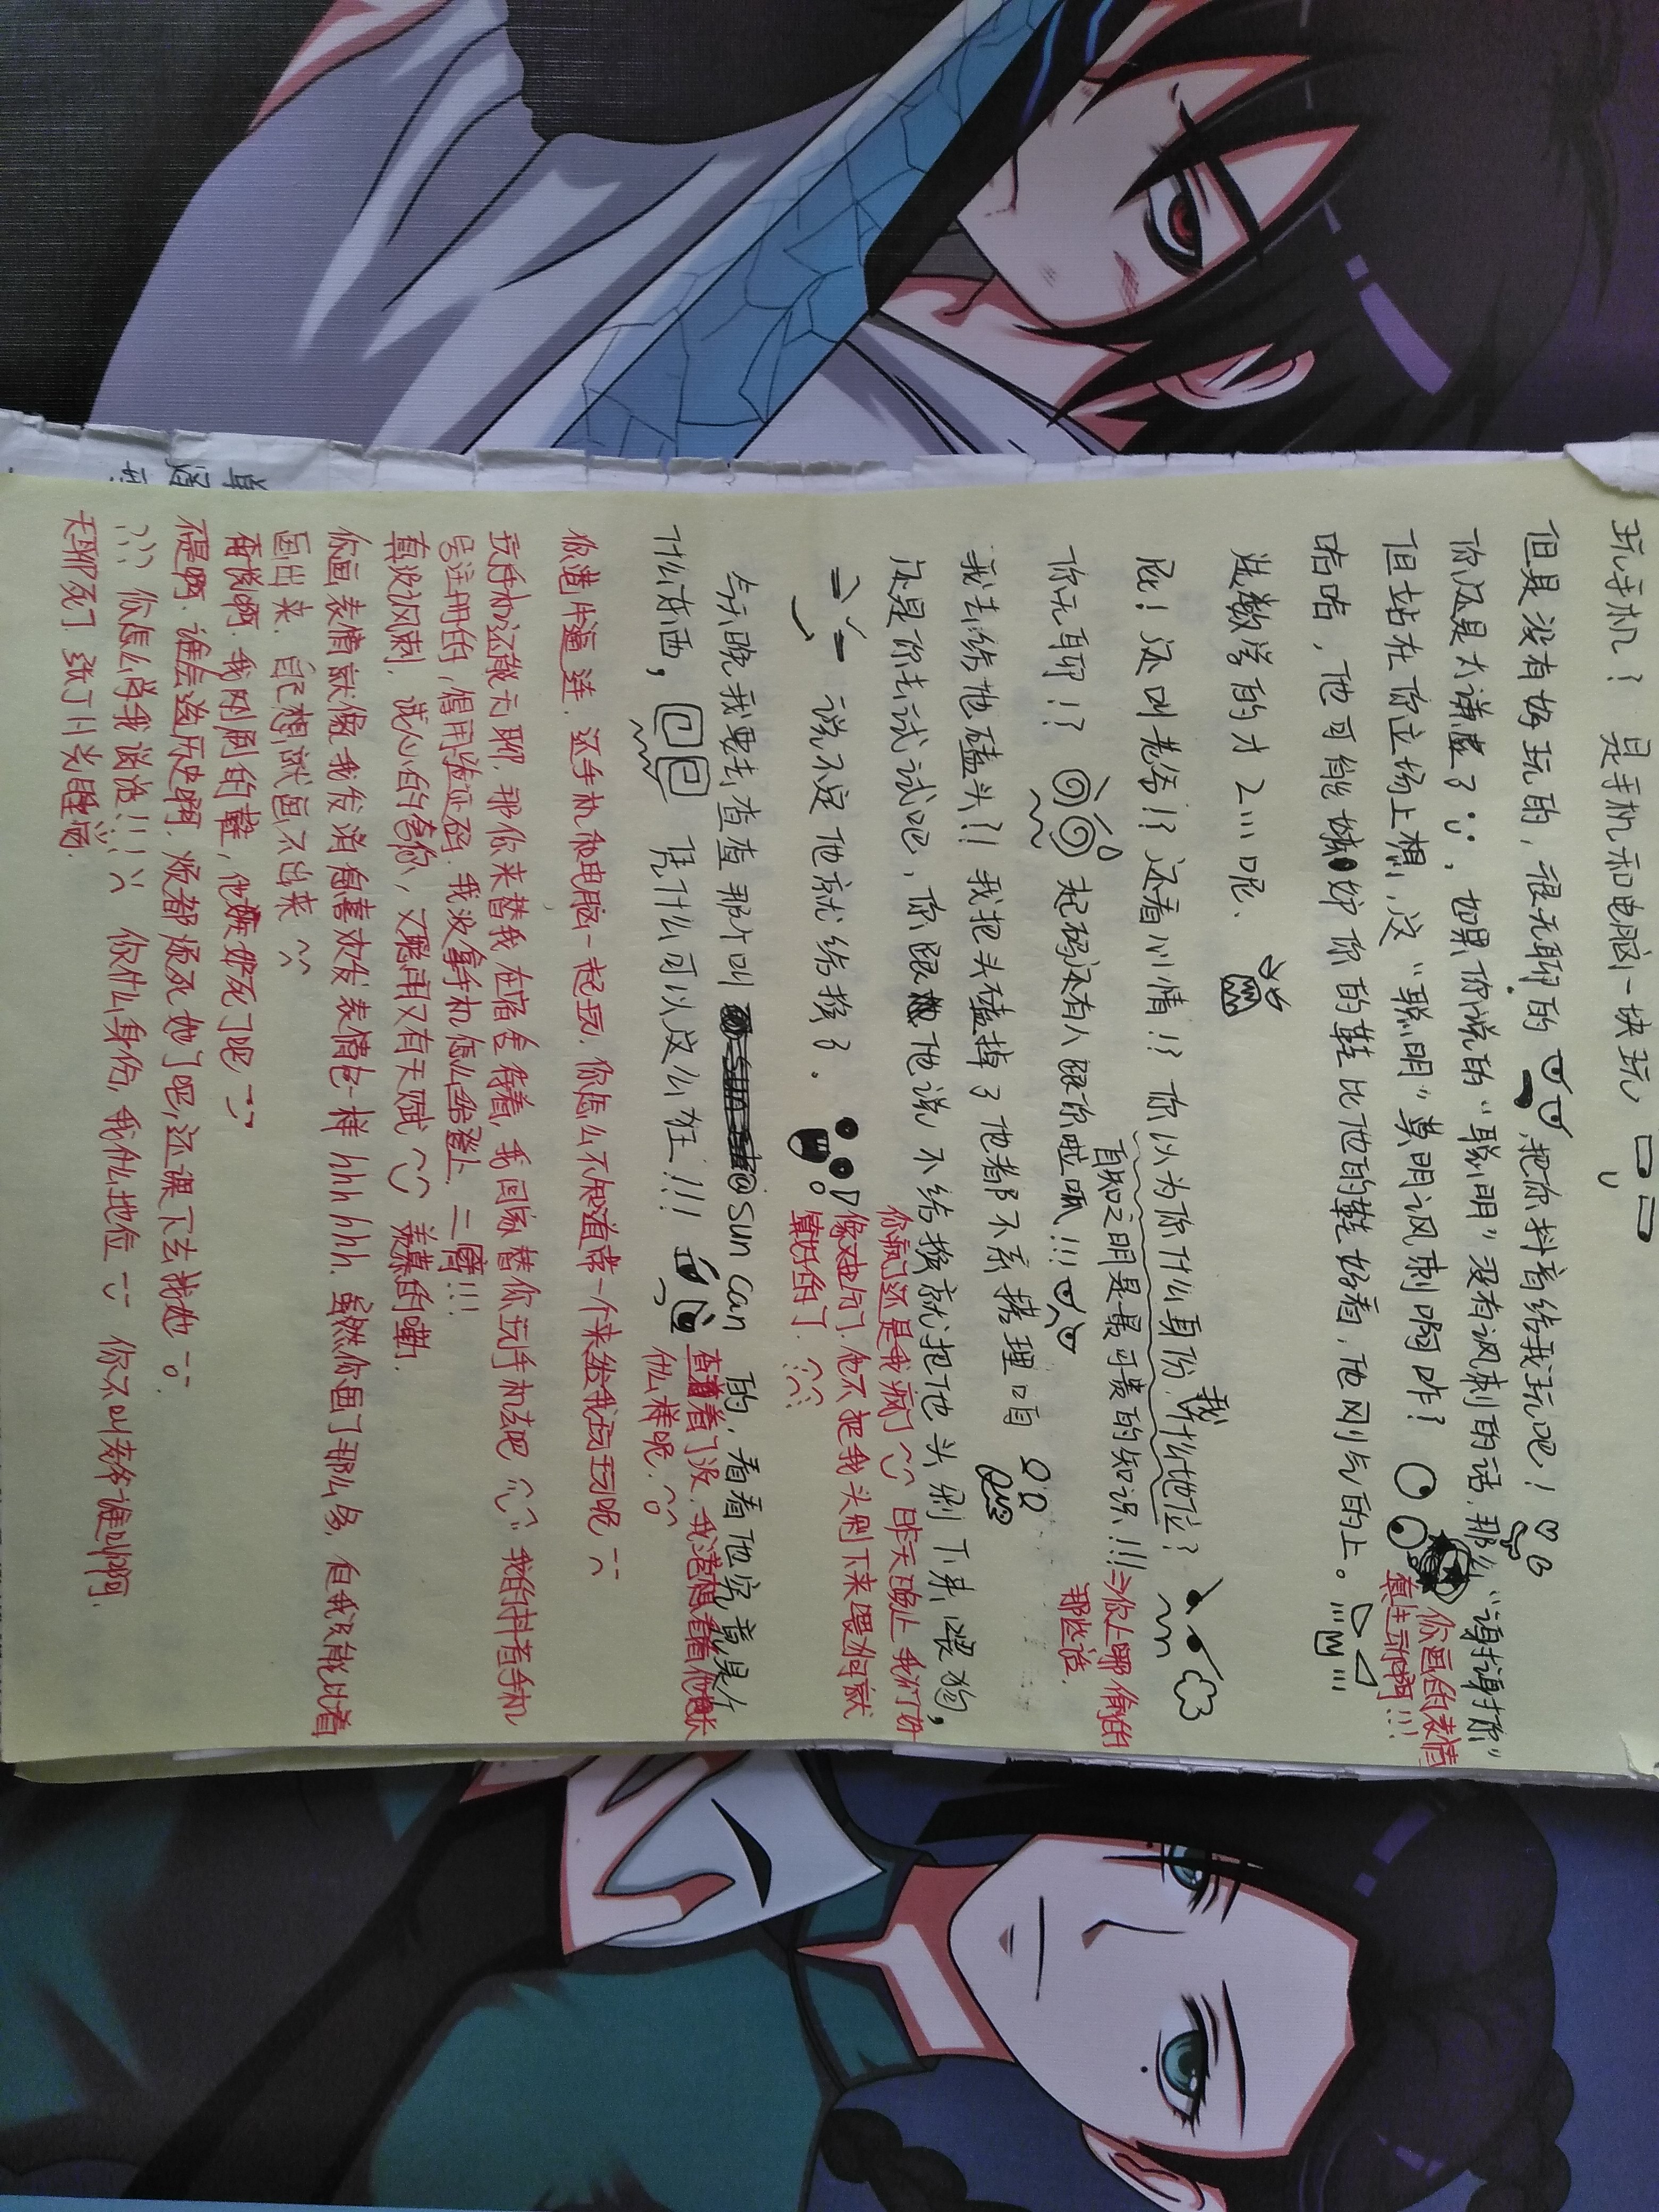 玩手机？ 是手机和电脑一块玩
但是没有好玩的，很无聊的 ，把你抖音给我玩吧！
你还是太谦虚了 ，如果你说的“聪明”没有讽刺的话，那么“谢谢你”
但站在你立场上想，这“聪明”莫明讽刺啊咋？
你画的表情
真生动啊!!!
哈哈，他可能嫉妒你的鞋比他的鞋好看，他刚气的上。
选数学的才2...呢.
我
屁！还叫老爷!？还看心情!？ 你以为你什么身份，什么地位？
自知之明是最可贵的知识!!!⇒你上哪偷的
那些话.
你无聊!？ 起码还有人跟你啦呱!!!
我去给他磕头?! 我把头磕掉了他都不系搭理咱
还是你去试试吧，你跟他说不给换就把他头剁下来喂狗，
你疯了还是我疯了 昨天晚上我们好
像对出分了.他不把我头剁下来喂狗就
算好的了.
说不定他就给换了.
今天晚我要去查查那个叫 @sun can 的，看看他究竟是个
什么东西， 凭什么可以这么狂!!!
查着了没.我港想看看他长
什么样呢.
你港牛逼连.还手机和电脑一起玩.你怎么不知道带一个来给我玩玩呢
玩手机还能无聊.那你来替我在宿舍待着，我回家替你玩手机去吧 我的抖音手机
号注册的，得用验证码.我没拿手机怎么给登上.二臂!!!
真没讽刺.诚心的夸你，又聪明又有天赋 羡慕的嘞.
你画表情就像我发消息喜欢发表情包一样hhhhhh.虽然你画了那么多，但我只能比着
画出来.自己想就画不出来
再说啊.我刚刷的鞋，他嫉妒死了吧
不是啊.谁会选历史啊.烦都烦死她了吧，还课下去找她
??? 你怎么学我说话!!! 你什么身份，我什么地位 你不叫老爷谁叫啊.
无聊死了.张丁川光睡觉.